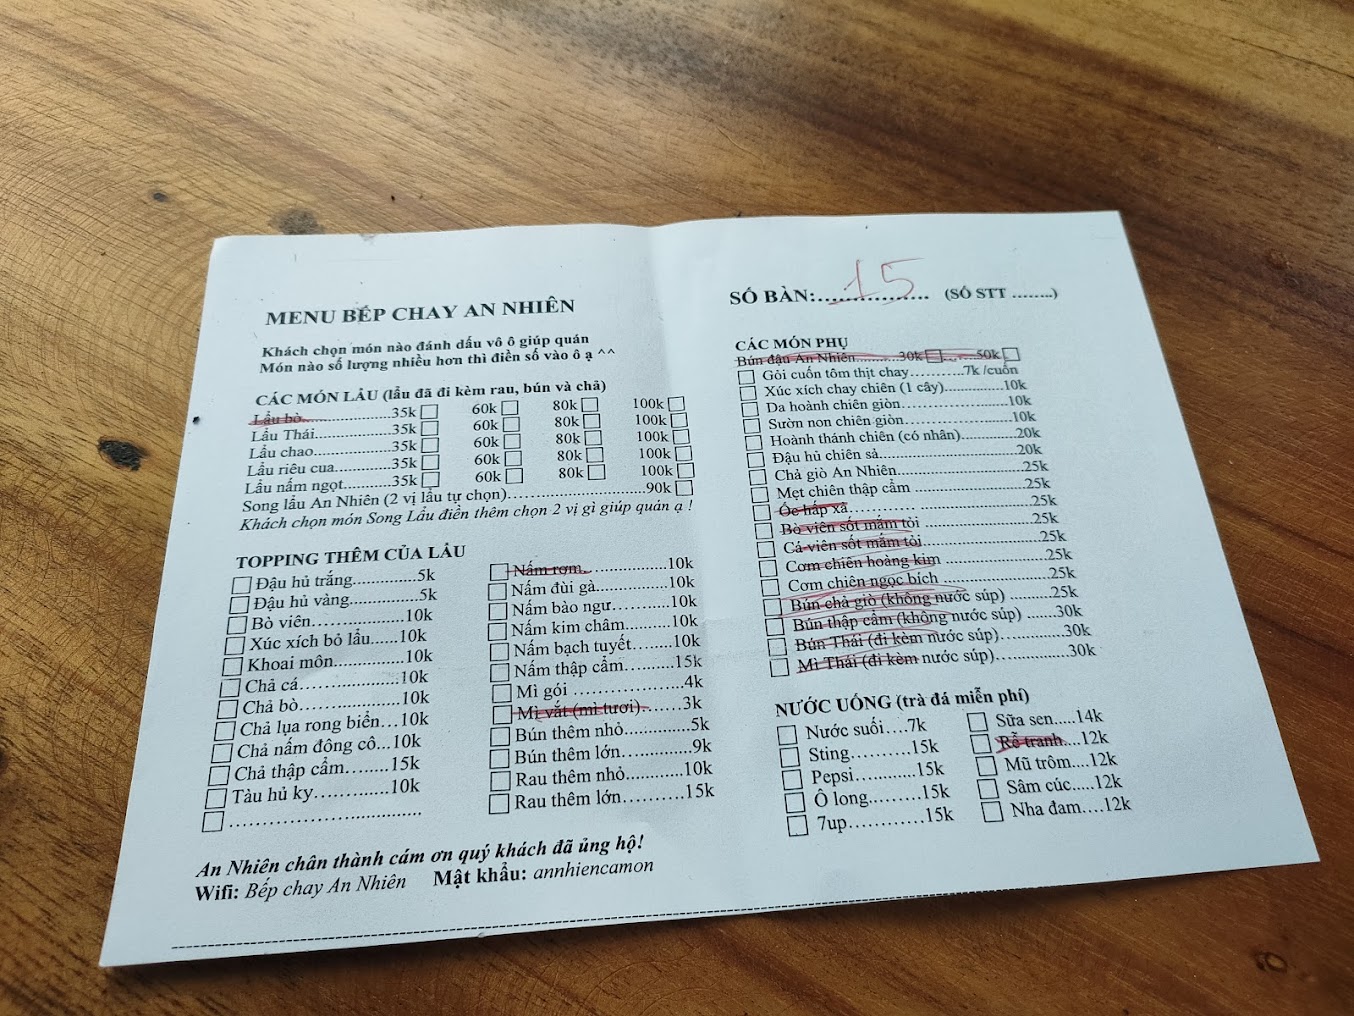 MENU BẾP CHAY AN NHIÊN
Khách chọn món nào đánh dấu vô ô giúp quán
Món nào số lượng nhiều hơn thì điền số vào ô ạ ^^
CÁC MÓN LẨU (lẩu đã đi kèm rau, bún và chả)
Lẩu bò.....................35k 60k 80k 100k
Lẩu Thái...................35k 60k 80k 100k
Lẩu chao...................35k 60k 80k 100k
Lẩu riêu cua...............35k 60k 80k 100k
Lẩu nấm ngọt...............35k 60k 80k 100k
Song lẩu An Nhiên (2 vị lẩu tự chọn)..............................90k
Khách chọn món Song Lẩu điền thêm chọn 2 vị gì giúp quán ạ !
TOPPING THÊM CỦA LẨU
Đậu hủ trắng............5k
Đậu hủ vàng.............5k
Bò viên.................10k
Xúc xích bỏ lẩu......10k
Khoai môn.............10k
Chả cá..................10k
Chả bò..................10k
Chả lụa rong biển...10k
Chả nấm đông cô...10k
Chả thập cẩm........15k
Tàu hủ ky..............10k
...................................
Nấm rơm...................10k
Nấm đùi gà................10k
Nấm bào ngư...........10k
Nấm kim châm..........10k
Nấm bạch tuyết........10k
Nấm thập cẩm..........15k
Mì gói ....................4k
Mì vắt (mì tươi).......3k
Bún thêm nhỏ............5k
Bún thêm lớn.............9k
Rau thêm nhỏ...........10k
Rau thêm lớn............15k
An Nhiên chân thành cám ơn quý khách đã ủng hộ!
Wifi: Bếp chay An Nhiên Mật khẩu: annhiencamon
SỐ BÀN:......15......... (SỐ STT ........)
CÁC MÓN PHỤ
Bún đậu An Nhiên.........30k .......50k
Gỏi cuốn tôm thịt chay..........7k /cuốn
Xúc xích chay chiên (1 cây)............10k
Da hoành chiên giòn.......................10k
Sườn non chiên giòn.......................10k
Hoành thánh chiên (có nhân)...........20k
Đậu hủ chiên sả..............................20k
Chả giò An Nhiên...........................25k
Mẹt chiên thập cẩm ........................25k
Ốc hấp xả......................................25k
Bò viên sốt mắm tỏi ......................25k
Cá viên sốt mắm tỏi........................25k
Cơm chiên hoàng kim ....................25k
Cơm chiên ngọc bích .....................25k
Bún chả giò (không nước súp) ........25k
Bún thập cẩm (không nước súp) .......30k
Bún Thái (đi kèm nước súp)..............30k
Mì Thái (đi kèm nước súp)...............30k
NƯỚC UỐNG (trà đá miễn phí)
Nước suối....7k
Sting...........15k
Pepsi...........15k
Ô long.........15k
7up.............15k
Sữa sen.....14k
Rễ tranh....12k
Mũ trôm....12k
Sâm cúc.....12k
Nha đam....12k